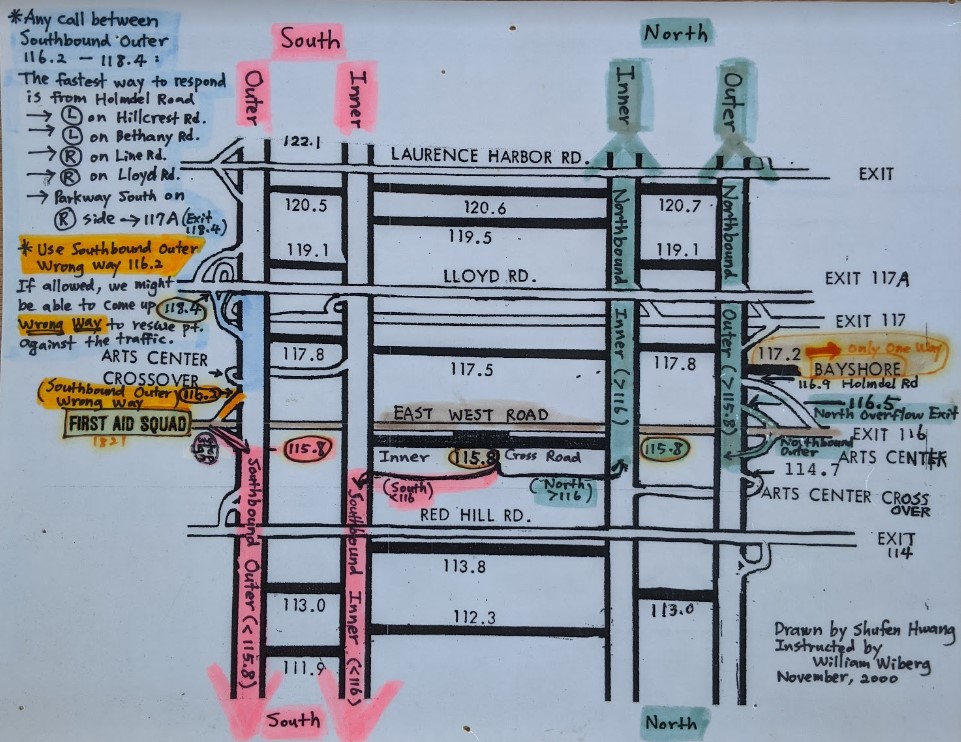 *Any call between
Southbound Outer
116.2 — 118.4 :
The fastest way to respond
is from Holmdel Road
→ Ⓛ on Hillcrest Rd.
→ Ⓛ on Bethany Rd.
→ Ⓡ on Line Rd.
→ Ⓡ on Lloyd Rd.
→ Parkway South on
Ⓡ side → 117A (Exit 118.4)
* Use Southbound Outer
Wrong Way 116.2
If allowed, we might
be able to come up 118.4
Wrong Way to rescue pt.
against the traffic.
South
North
Outer
Inner
Inner
Outer
122.1
LAURENCE HARBOR RD.
EXIT
120.5
120.6
120.7
119.5
119.1
119.1
LLOYD RD.
EXIT 117A
EXIT 117
ARTS CENTER
CROSSOVER →
117.8
117.5
117.8
117.2 → Only One Way
BAYSHORE
116.9 Holmdel Rd
(Southbound Outer 116.2→
Wrong Way)
116.5
North Overflow Exit
FIRST AID SQUAD
1821
EAST WEST ROAD
EXIT 116
ARTS CENTER
115.8
Inner 115.8 Cross Road
115.8
Northbound
Outer
114.7
(South)
<116
(North)
>116
ARTS CENTER CROSS
OVER
RED HILL RD.
EXIT
114
113.8
113.0
113.0
112.3
111.9
Southbound Outer (<115.8)
Southbound Inner (<116)
Northbound Inner (>116)
Northbound Outer (>115.8)
South
North
Drawn by Shufen Hwang
Instructed by
William Wiberg
November, 2000